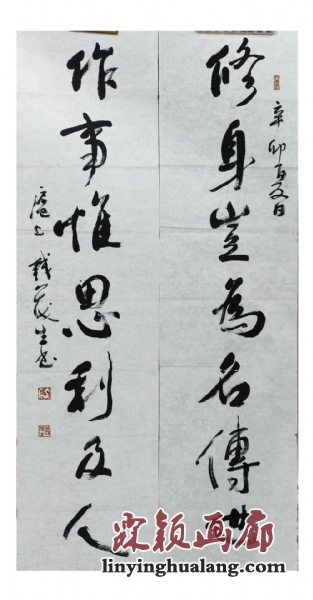 辛卯夏日
修身豈為名傳世
作事惟思利及人
滬上錢茂生书
霖颖画廊
linyinghualang.com